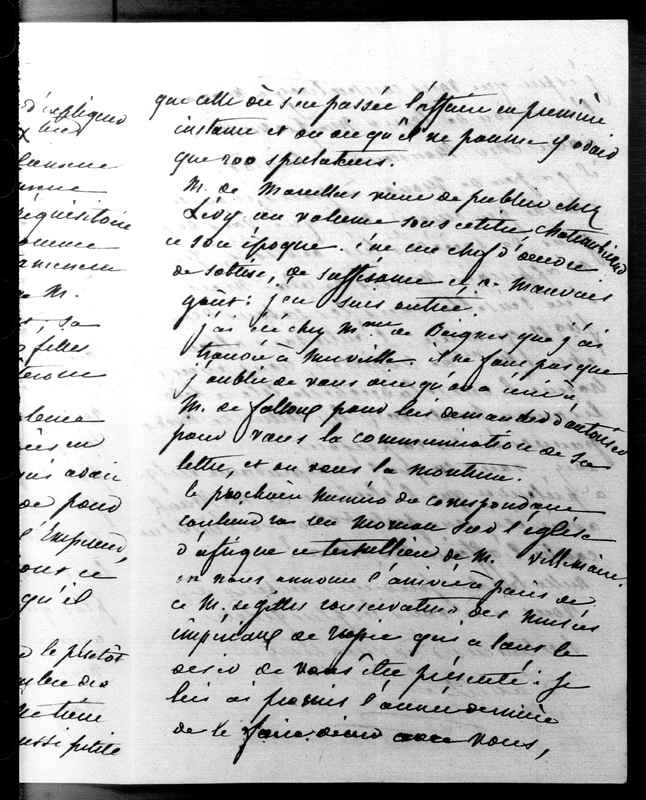 d'expliquer
que celle où s'est passée l'affaire en première
instance et on dit qu'il ne pourra y avoir
que 200 spectateurs.
M. de Marcellus vient de publier chez
Lévy un volume sous ce titre Chateaubriand
et son époque. c'est un chef d'œuvre
de sottise, de suffisance et de mauvais
goût : j'en suis outrée.
j'ai été chez Mme de Boignes que j'ai
trouvée à merveille. il ne faut pas que
j'oublie de vous dire qu'on a écrit à
M. de Falloux pour lui demander d'autoriser
pour vous la communication de sa
lettre, et on vous la montrera.
le prochain numéro du correspondant
contiendra un morceau sur l'église
d'afrique et tertullien de M. Villemain.
on nous annonce l'arrivée à paris de
ce M. de gilles conservateur des musées
impériaux de russie qui a tant le
désir de vous être présenté : je
lui ai promis l'année dernière
de le faire dîner avec vous,
réquisitoire
de M.
et sa
filles
avait
de pour
l'Empereur,
qu'il
le plutôt
aussi petite